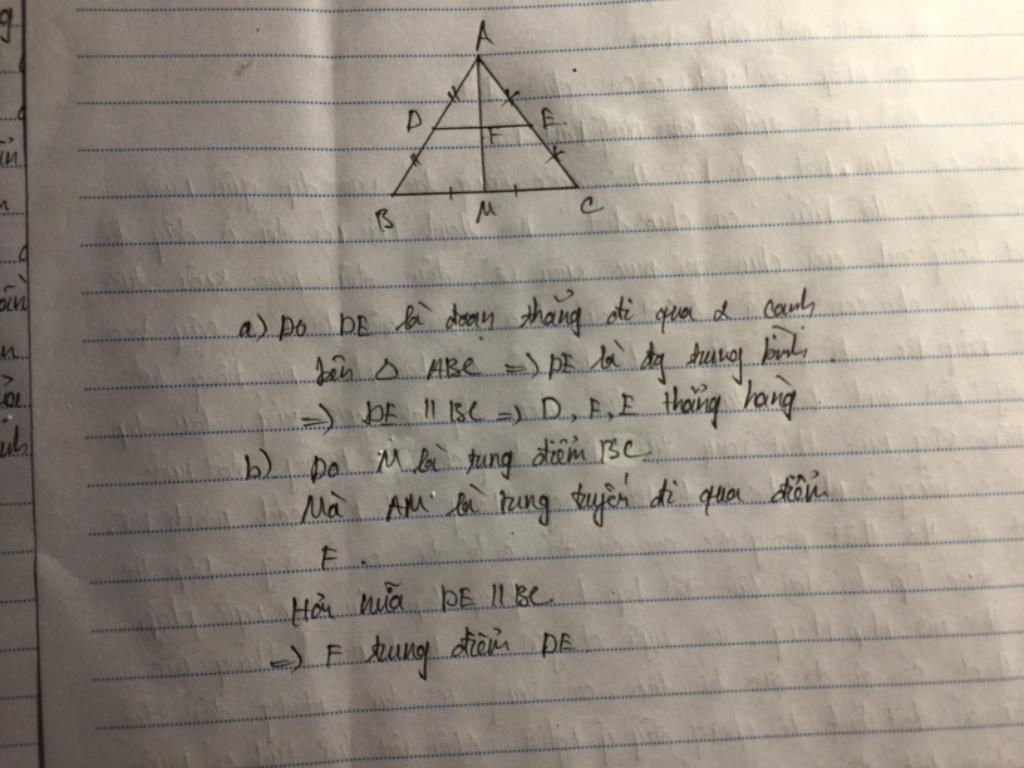 A
D
F
E
B
M
C
a) Do DE là đoạn thẳng đi qua 2 cạnh
bên Δ ABC => DE là đg trung bình.
=> DE // BC => D, F, E thẳng hàng
b) Do M là trung điểm BC
Mà AM là trung tuyến đi qua điểm
F.
Hơn nữa DE // BC
=> F trung điểm DE.